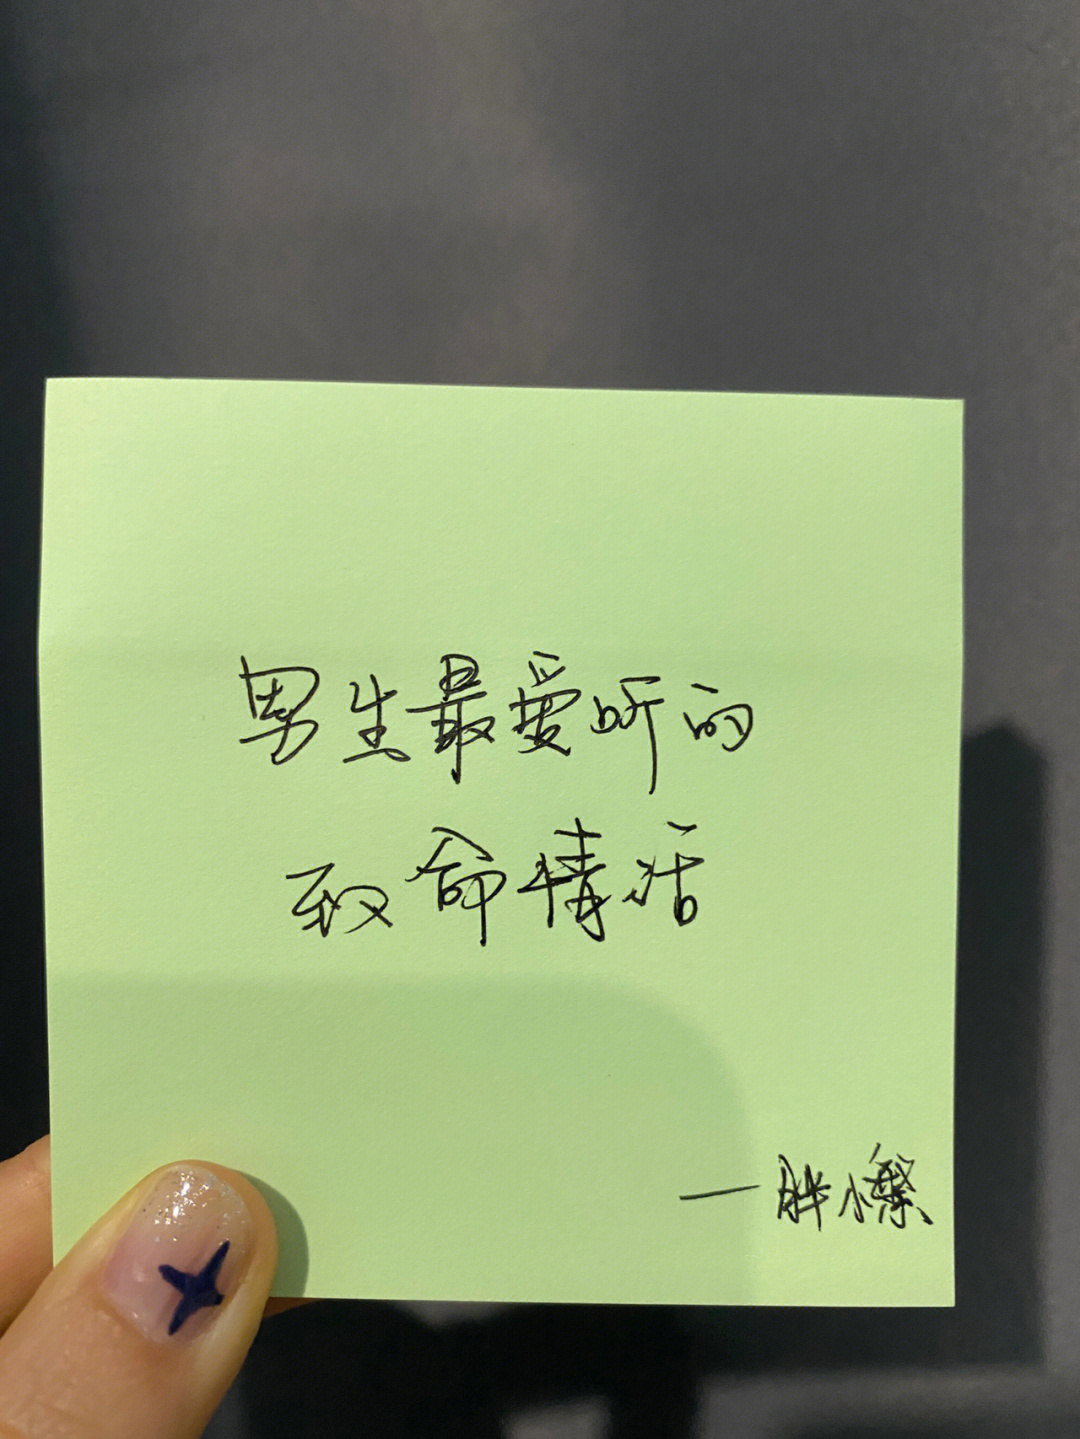 男生最爱听的
致命情话
—胖小粲